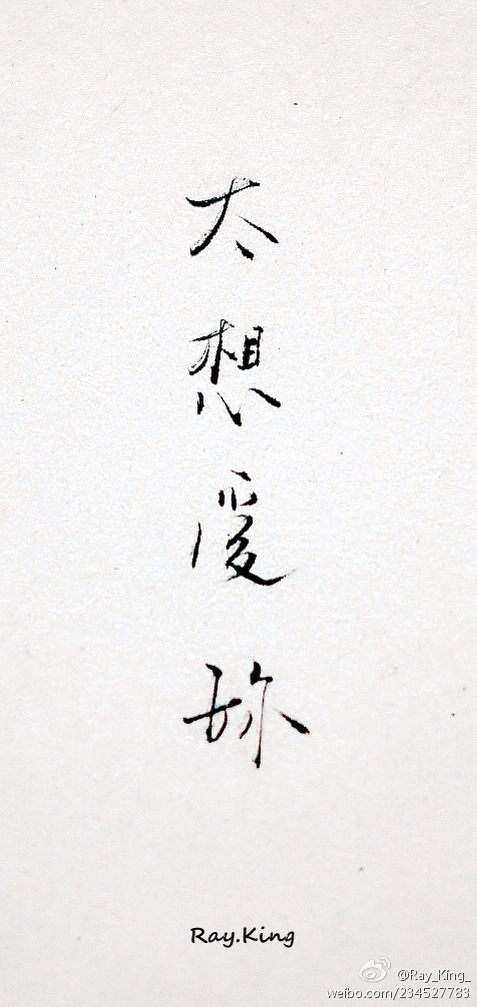 太想爱妳
Ray.King
@Ray_King_
weibo.com/234527783